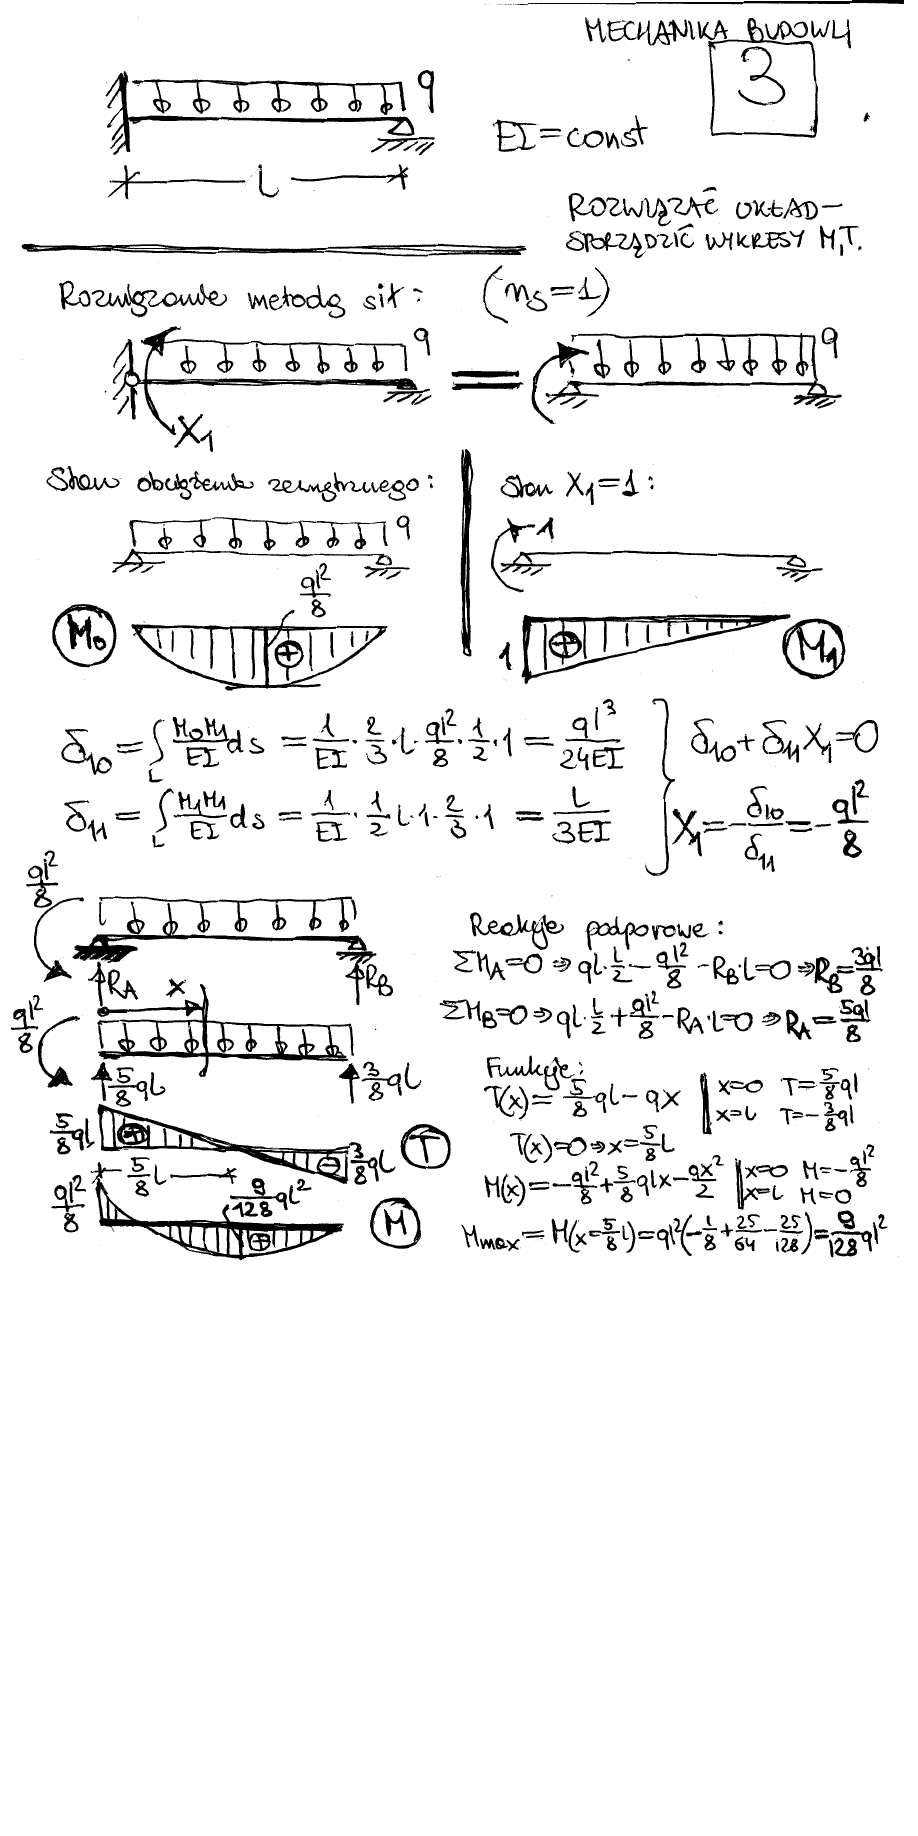 MECHANIKA BUDOWLI
3
q
EI=const
l
ROZWIĄZAĆ UKŁAD-
SPORZĄDZIĆ WYKRESY M,T.
Rozwiązanie metodą sił: (nₛ=1)
q
X₁
=
q
Stan obciążenia zewnętrznego:
q
ql²/8
M₀
+
Stan X₁=1:
1
1
+
M₁
δ₁₀ = ∫_L M₀M₁/EI ds = 1/EI · 2/3 · l · ql²/8 · 1/2 · 1 = ql³/24EI
δ₁₁ = ∫_L M₁M₁/EI ds = 1/EI · 1/2 l·1 · 2/3 · 1 = L/3EI
δ₁₀+δ₁₁X₁=0
X₁=-δ₁₀/δ₁₁=-ql²/8
ql²/8
R_A
x
R_B
ql²/8
5/8 ql
3/8 ql
5/8 ql
+
-
3/8 ql
T
5/8 l
ql²/8
9/128 ql²
+
M
Reakcje podporowe:
ΣM_A=0 ⇒ ql·L/2 - ql²/8 - R_B·l=0 ⇒ R_B=3ql/8
ΣM_B=0 ⇒ ql·L/2 + ql²/8 - R_A·l=0 ⇒ R_A=5ql/8
Funkcje:
T(x)=5/8 ql - qx | x=0 T=5/8 ql
x=L T=-3/8 ql
T(x)=0 ⇒ x=5/8 L
M(x)=-ql²/8+5/8 qlx-qx²/2 | x=0 M=-ql²/8
x=L M=0
Mmax=M(x=5/8 l)=ql²(-1/8+25/64-25/128)=9/128 ql²